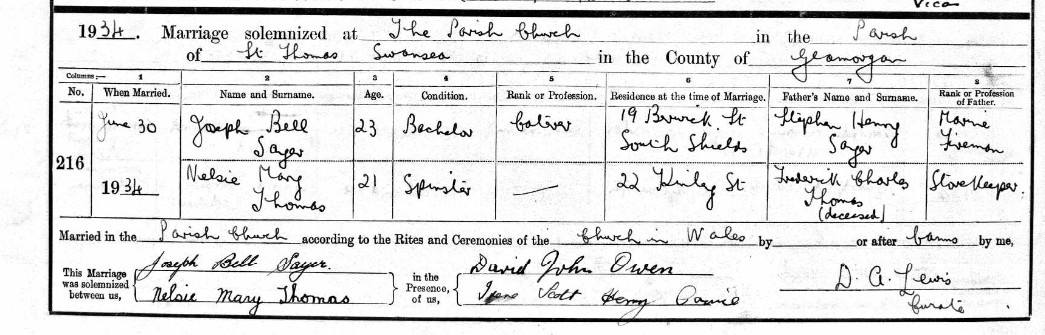 1934. Marriage solemnized at The Parish Church in the Parish
of St Thomas Swansea in the County of Glamorgan
Columns:— 1 2 3 4 5 6 7 8
No. When Married. Name and Surname. Age. Condition. Rank or Profession. Residence at the time of Marriage. Father's Name and Surname. Rank or Profession of Father.
216
June 30 1934
Joseph Bell Sayer
23
Bachelor
19 Berwick St South Shields
Stephen Henry Sayer
Marine Fireman
Nelsie Mary Thomas
21
Spinster
—
22 Kinley St
Frederick Charles Thomas (deceased)
Storekeeper.
Married in the Parish Church according to the Rites and Ceremonies of the Church in Wales by or after banns by me,
This Marriage was solemnized between us,
Joseph Bell Sayer.
Nelsie Mary Thomas
in the Presence, of us,
David John Owen
Irene Scott Henry
D. A. Lewis
Curate